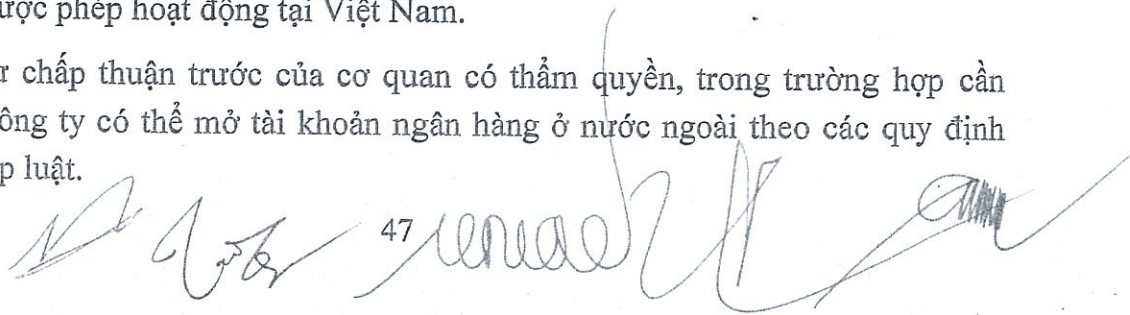 ược phép hoạt động tại Việt Nam.
chấp thuận trước của cơ quan có thẩm quyền, trong trường hợp cần
ông ty có thể mở tài khoản ngân hàng ở nước ngoài theo các quy định
p luật.
47